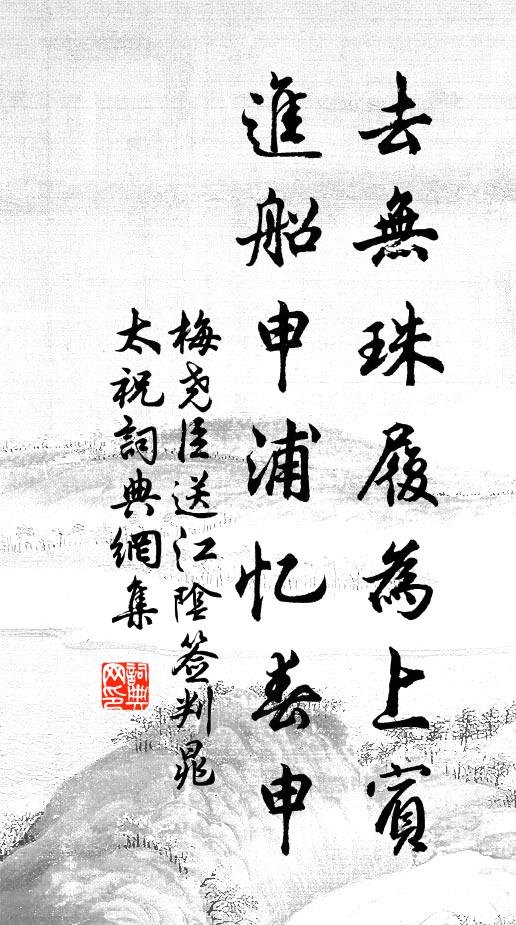 去無珠履為上賓
進船申浦忆春申
梅尧臣送江陰签判晁
太祝詞典網集
詞典网印